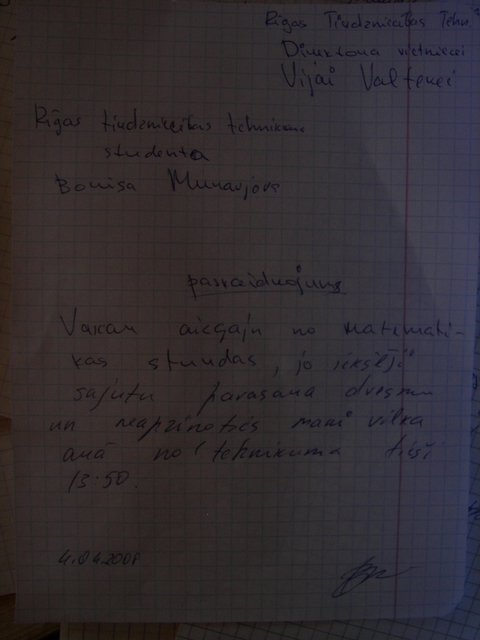 Rīgas Tirdzniecības Tehn.
Direktora vietniecei
Vijai Valterei
Rīgas tirdzniecības tehnikuma
studenta
Borisa Muravjova
paskaidrojums
Vakar aizgāju no matemāti-
kas stundas, jo iekšēji
sajutu pavasara dvesmu
un neapzinoties mani vilka
ārā no tehnikuma tieši
13:50.
4.04.2008